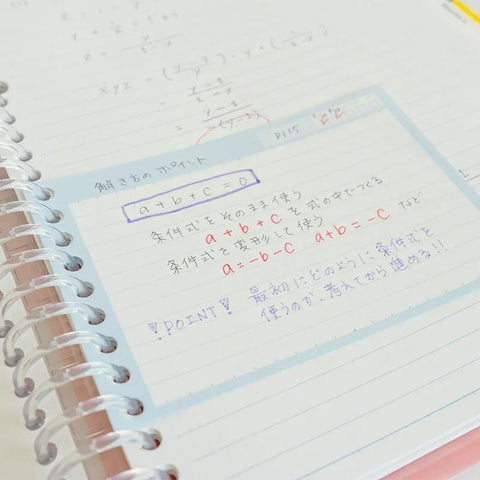 xyz =
解き方のポイント
P115
a + b + c = 0
条件式をそのまま使う
a + b + c を式の中でつくる
条件式を変形して使う
a = -b - c a + b = -c など
POINT! 最初にどのように条件式を
使うのか、考えてから進める!!